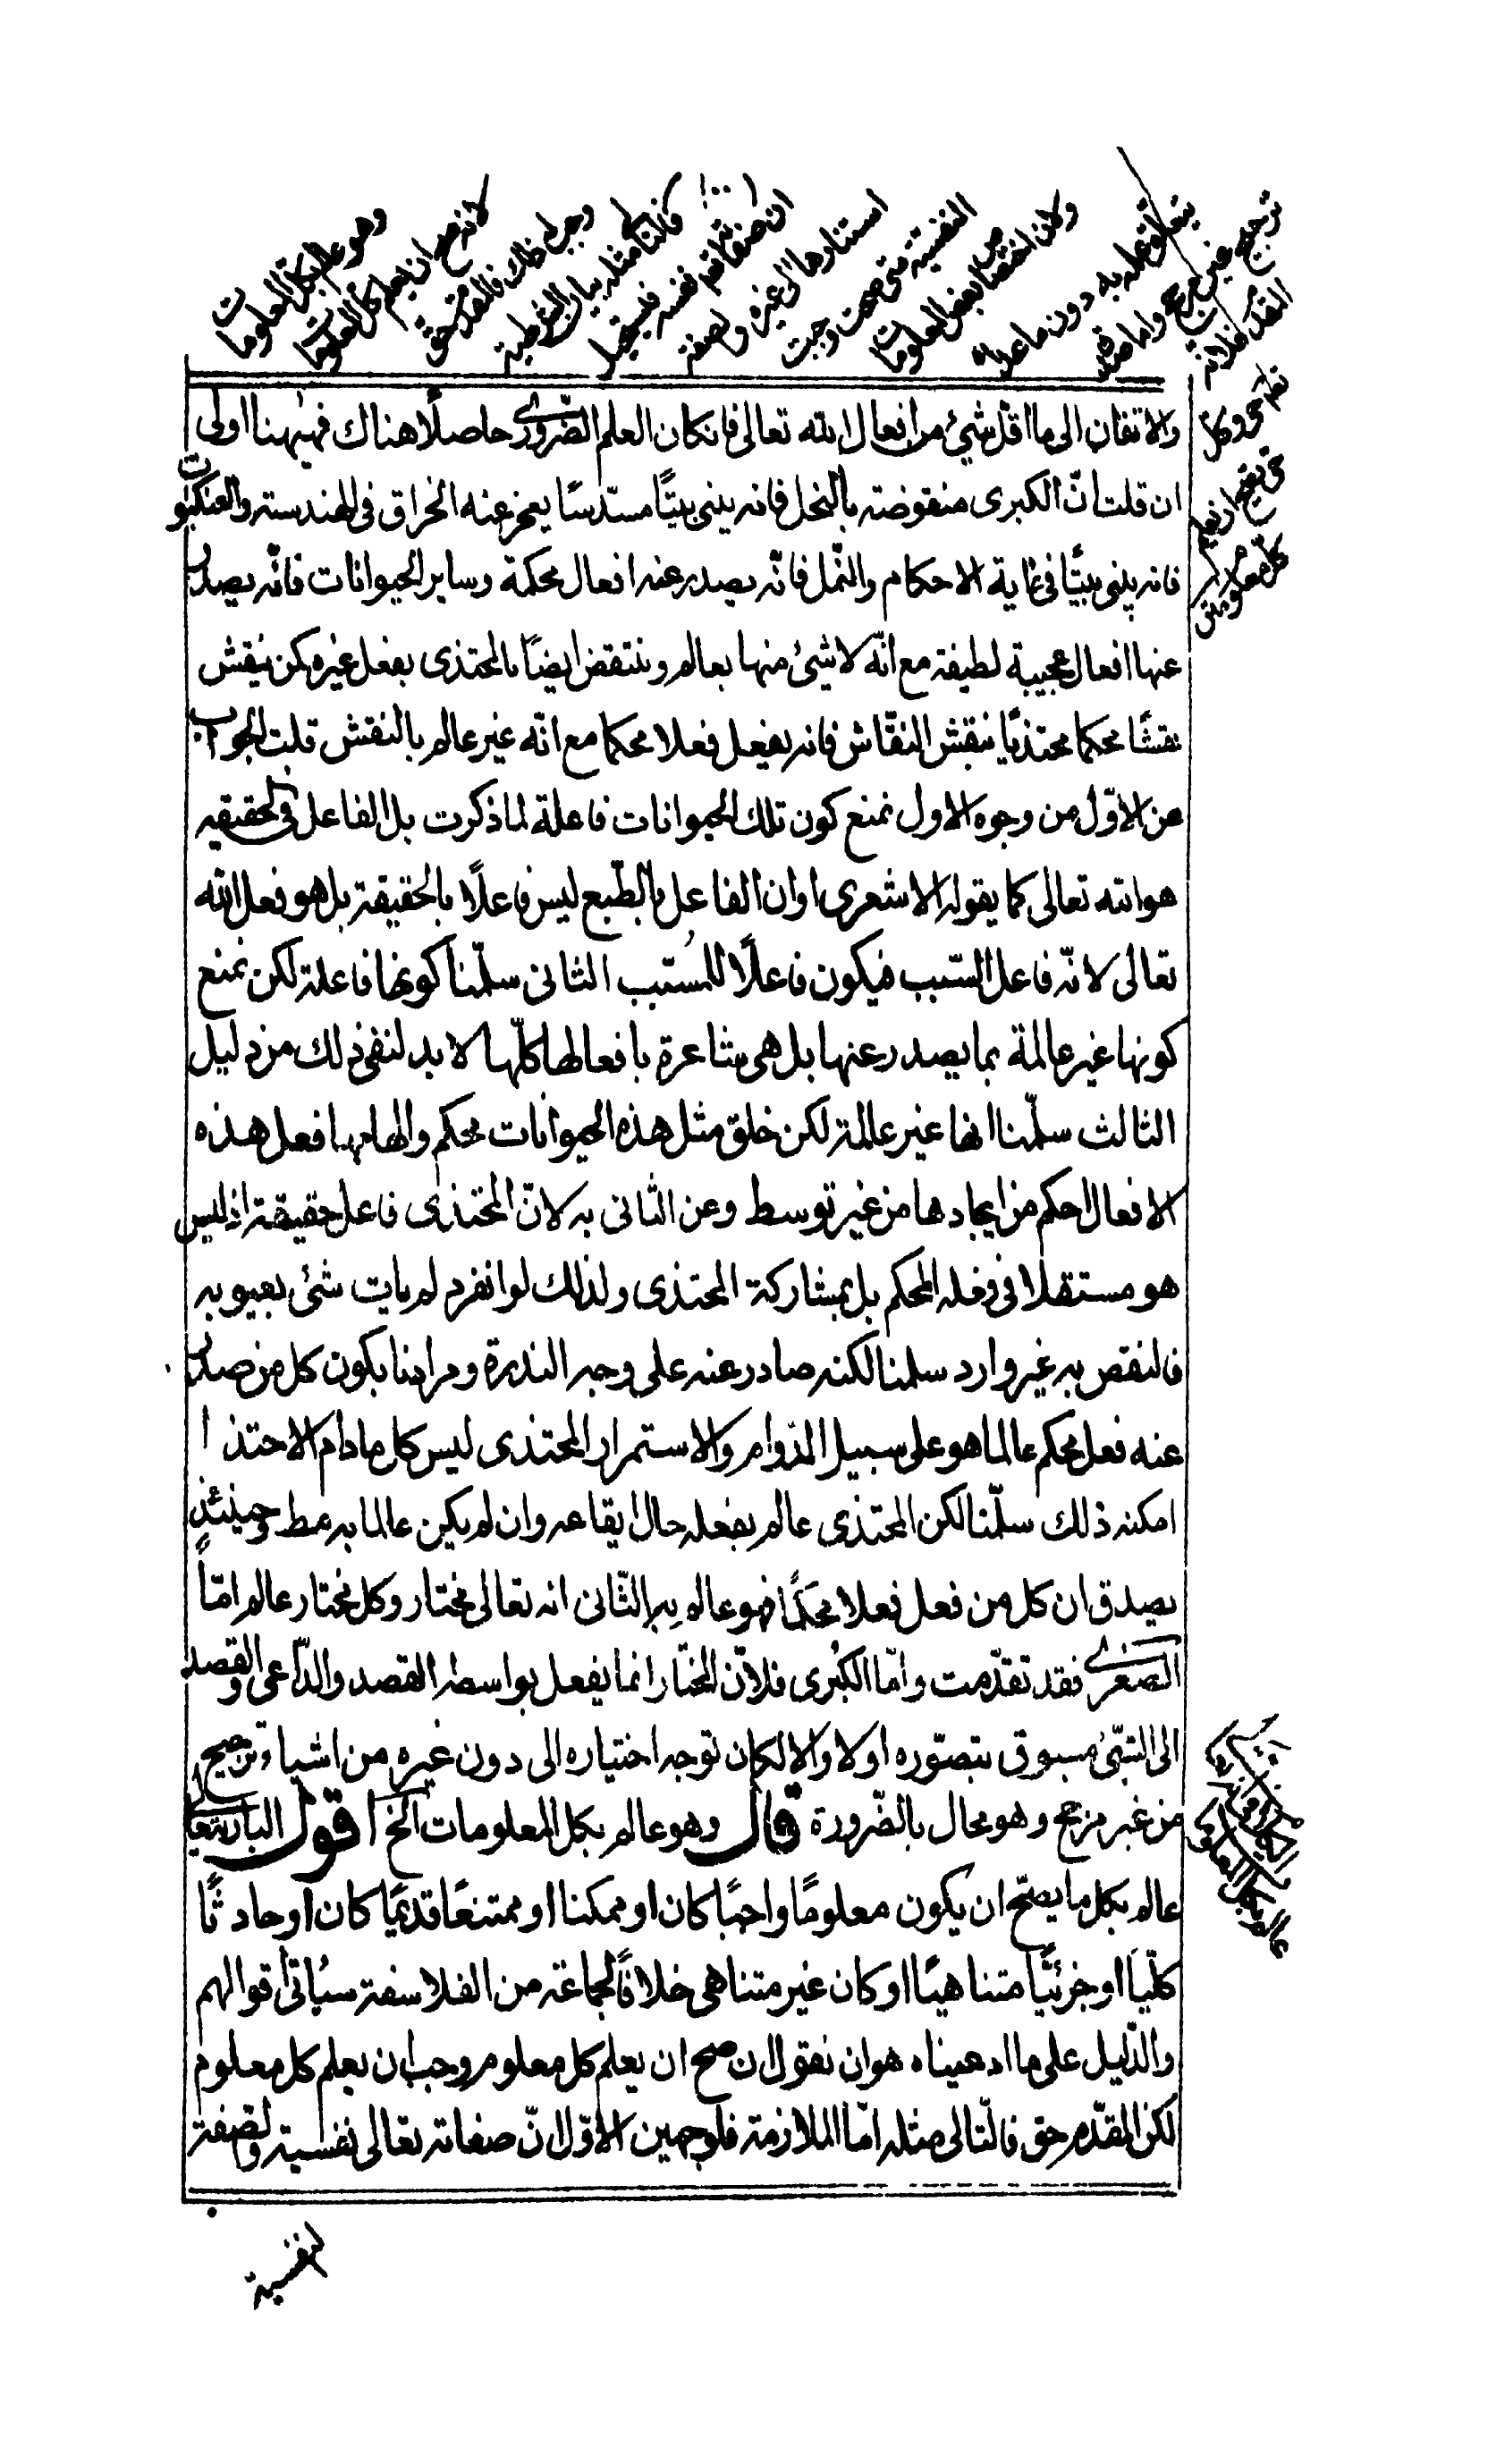 وهو عالم بكل المعلومات
لانه صح ان يعلم كل المعلومات
وجب له ذلك فالمقدم حق
فالتالى مثله بيان الشرطية
ان صفاته نفسه فيستحيل
استنادها الى غيره والصفة
النفسية متى صحت وجبت
ولان اختصاص بعض المعلومات
يتعلق علمه به دون ما عداه
ترجيح من غير مرجح واما صدق
المقدم فلانه
تعالى حى وكل
حى يصح ان يعلم
كل معلوم
والاتقان الى ما اقل شيئ من افعال الله تعالى فان كان العلم الضرورى حاصلًا هناك فهيهنا اولى
ان قلت انّ الكبرى منقوضة بالنحل فانه يبنى بيتًا مسدّسًا يعجز عنه الحذاق فى الهندسة والعنكبوت
فانه يبنى بيتًا فى غاية الاحكام والنّمل فانّه يصدر عنه افعال محكمة وساير الحيوانات فانّه يصدر
عنها افعال عجيبة لطيفة مع انّه لا شيئ منها بعالم وينتقض ايضًا بالمحتذى بفعل غيره كمن ينقش
نقشًا محكما محتذيًا بنقش النقّاش فانه يفعل فعلا محكما مع انّه غير عالم بالنقش قلت الجواب
عن الاوّل من وجوه الاول نمنع كون تلك الحيوانات فاعلة لما ذكرت بل الفاعل فى الحقيقه
هو الله تعالى كما يقوله الاشعرى او ان الفاعل بالطّبع ليس فاعلًا بالحقيقة بل هو فعل الله
تعالى لانّه فاعل السّبب فيكون فاعلًا للمسبّب الثانى سلّمنا كونها فاعلة لكن نمنع
كونها غير عالمة بما يصدر عنها بل هى شاعرة بافعالها كلّها لا بد لنفى ذلك من دليل
الثالث سلّمنا انها غير عالمة لكن خلق مثل هذه الحيوانات محكم والهامها فعل هذه
الافعال احكم من ايجادها من غير توسط وعن الثانى به لانّ المحتذى فاعل حقيقة اذ ليس
هو مستقلا فى فعله المحكم بل بمشاركة المحتذى ولذلك لو انفرد لم يات شئى يعبو به
فالنقض به غير وارد سلمنا لكنه صادر عنه على وجه الندرة ومرادنا بكون كل من صدر
عنه فعل محكم عالما هو على سبيل الدوام والاستمرار المحتذى ليس كل ما دام الاحتذا
امكنه ذلك سلّمنا لكن المحتذى عالم بفعله حال ايقاعه وان لم يكن عالما به مط وحينئذ
يصدق ان كل من فعل فعلا محكمًا فهو عالم به الثّانى انه تعالى مختار وكل مختار عالم امّا
الصغرى فقد تقدّمت وامّا الكبرى فلانّ المختار انما يفعل بواسطه القصد والدّاعى والقصد
الى الشّئ مسبوق بتصوّره اولا والا لكان توجه اختياره الى دون غيره من اشياء ترجيح
من غير مرجح وهو محال بالضّرورة قال وهو عالم بكل المعلومات الخ اقول البارى تعالى
عالم بكل ما يصحّ ان يكون معلومًا واجبًا كان او ممكنا او ممتنعًا قديمًا كان او حادثًا
كلّيا او جزئيًا متناهيًا او كان غير متناهى خلافًا لجماعة من الفلاسفة سياتى اقوالهم
والدّليل على ما ادعيناه هو ان نقول ان صح ان يعلم كل معلوم وجب ان يعلم كل معلوم
لكن المقدّم حق فالتّالى مثله امّا الملازمة فلوجهين الاوّل انّ صفاته تعالى نفسية والصفة
لنفسية